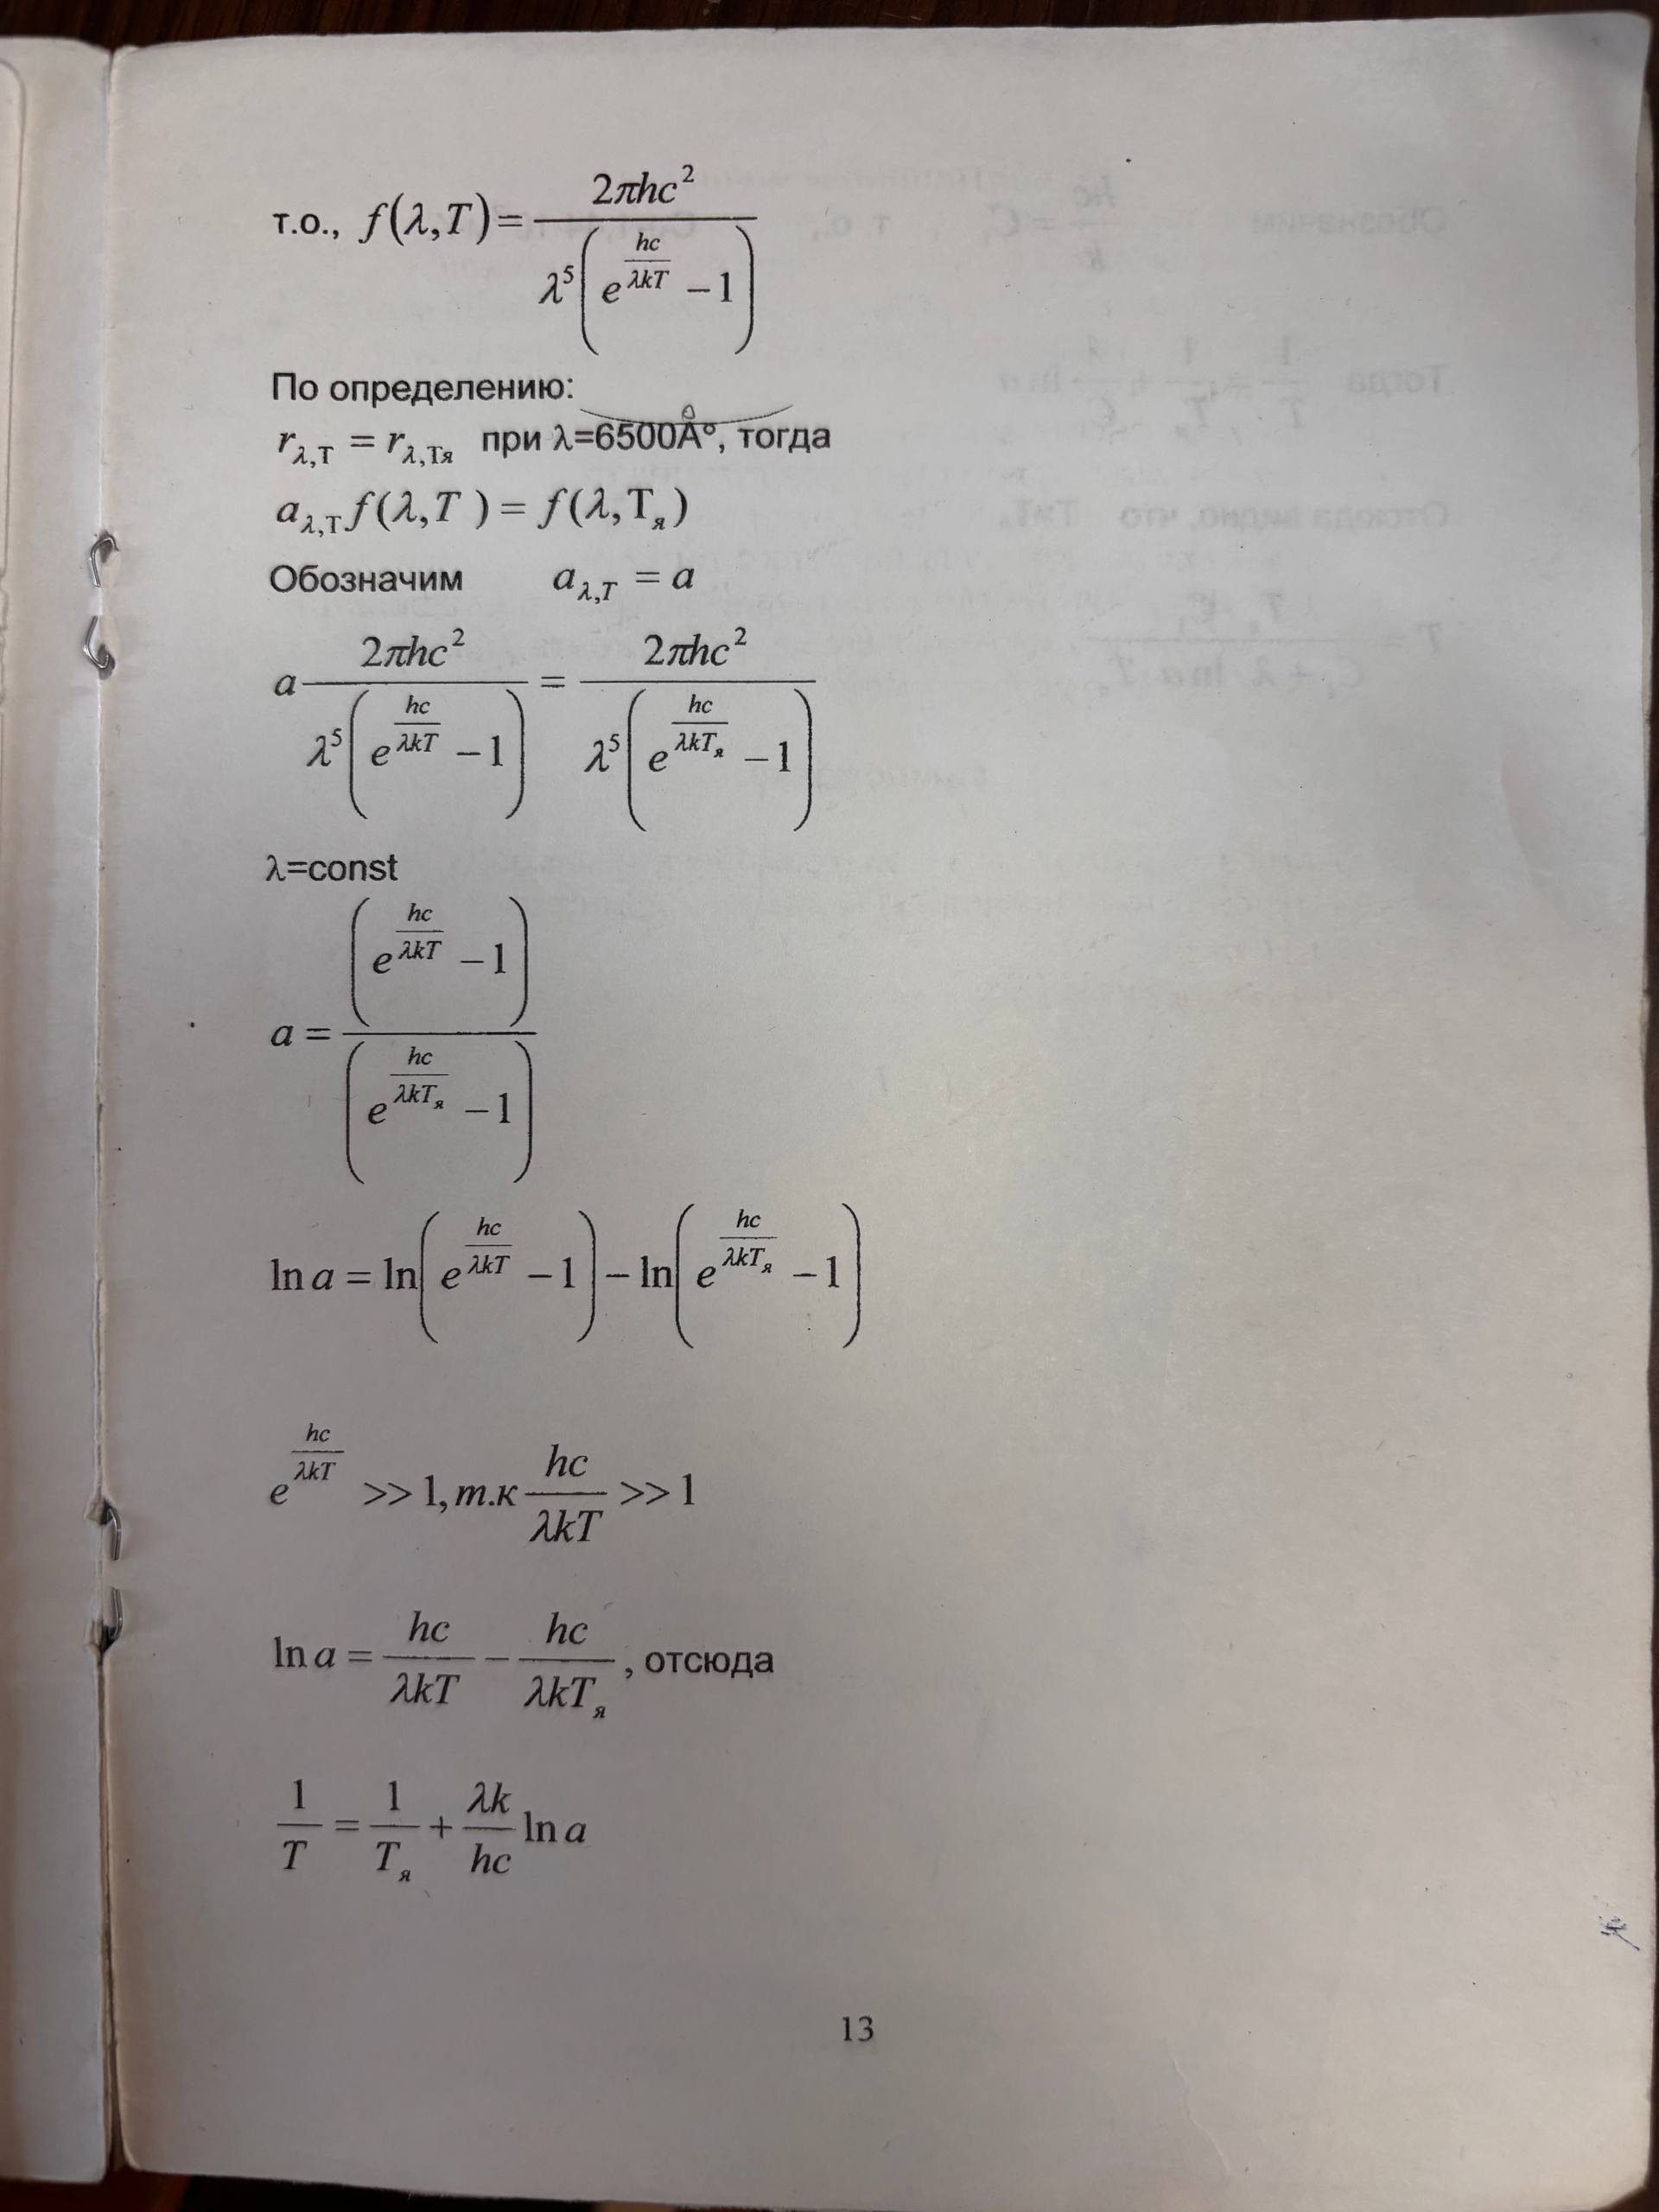 т.о., f(λ,T)= 2πhc² / λ⁵(e^(hc/λkT) −1)
По определению:
r_λ,T = r_λ,Tя при λ=6500Å°, тогда
a_λ,T f(λ,T) = f(λ,T_я)
Обозначим a_λ,T = a
a 2πhc² / λ⁵(e^(hc/λkT) −1) = 2πhc² / λ⁵(e^(hc/λkT_я) −1)
λ=const
a = (e^(hc/λkT) −1) / (e^(hc/λkT_я) −1)
ln a = ln(e^(hc/λkT) −1) − ln(e^(hc/λkT_я) −1)
e^(hc/λkT) >> 1, т.к hc/λkT >> 1
ln a = hc/λkT − hc/λkT_я , отсюда
1/T = 1/T_я + λk/hc ln a
13